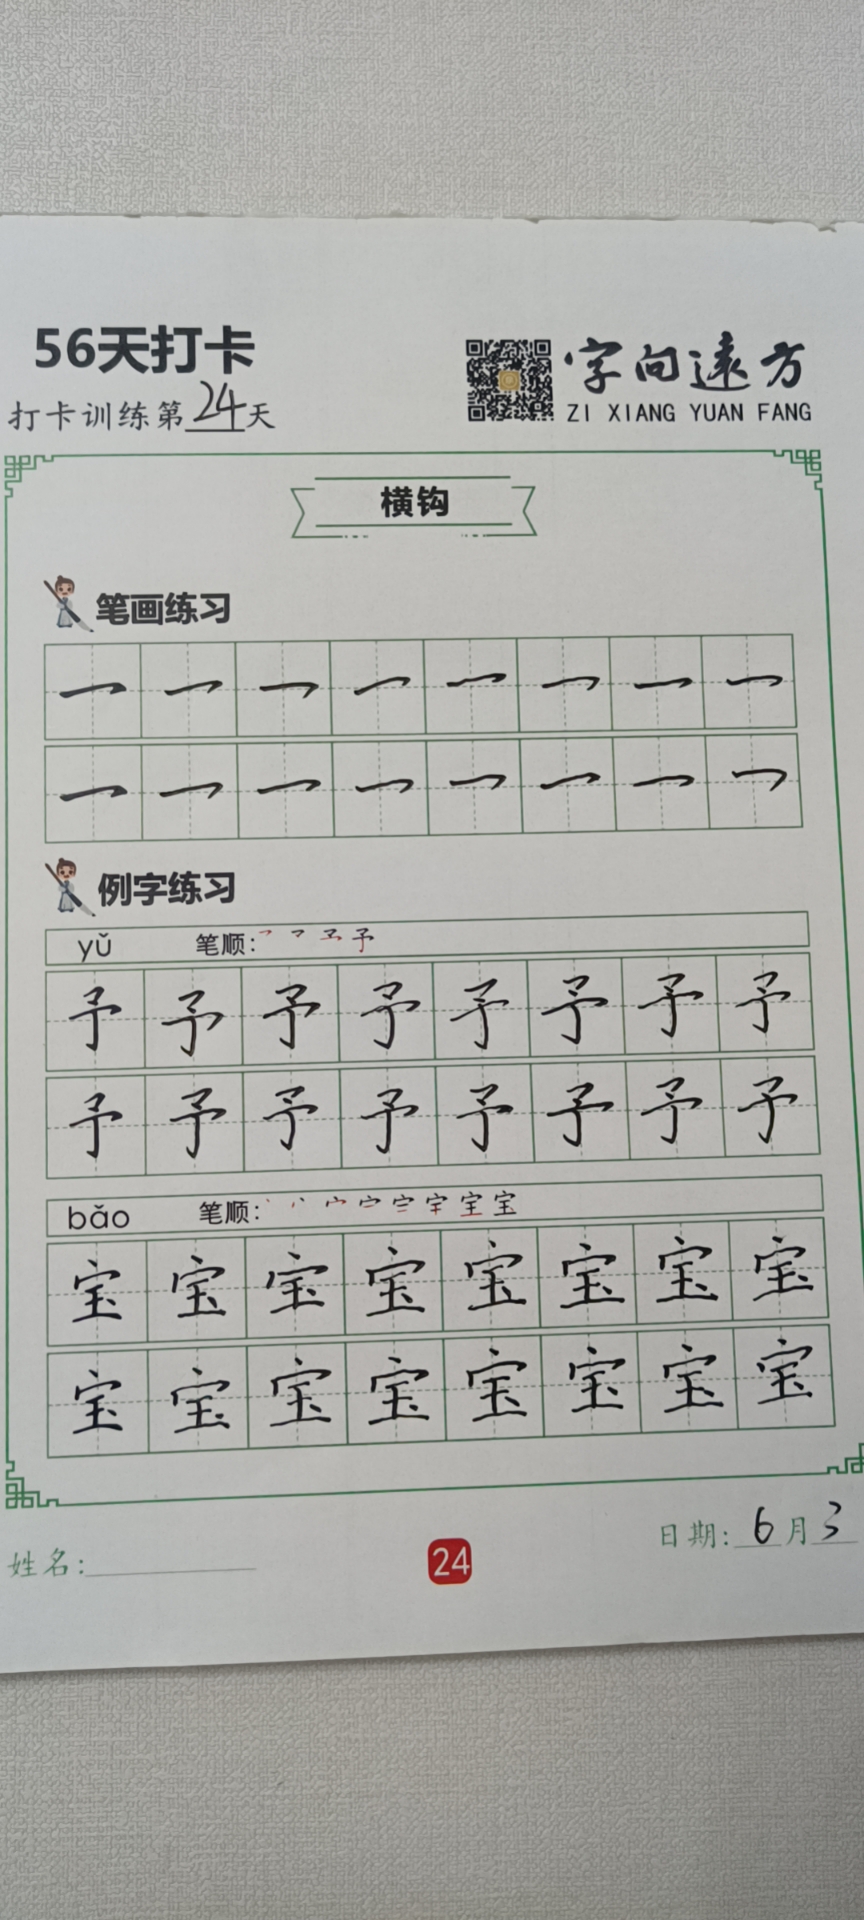 56天打卡
打卡训练第24天
字向遠方
ZI XIANG YUAN FANG
横钩
笔画练习
例字练习
yǔ 笔顺: 予
予 予 予 予 予 予 予 予
予 予 予 予 予 予 予 予
bǎo 笔顺: 宝
宝 宝 宝 宝 宝 宝 宝 宝
宝 宝 宝 宝 宝 宝 宝 宝
姓名:
24
日期: 6月3